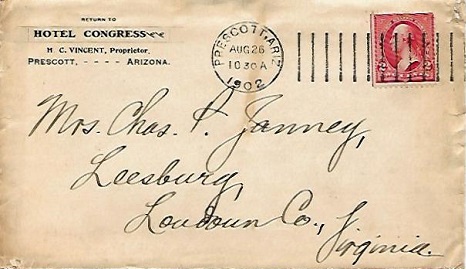 RETURN TO
HOTEL CONGRESS
H. C. VINCENT, Proprietor.
PRESCOTT, - - - - ARIZONA.
PRESCOTT, ARIZ.
AUG 26
10 30 A
1902
2 2
Mrs. Chas. P. Janney,
Leesburg,
Loudoun Co.,
Virginia.